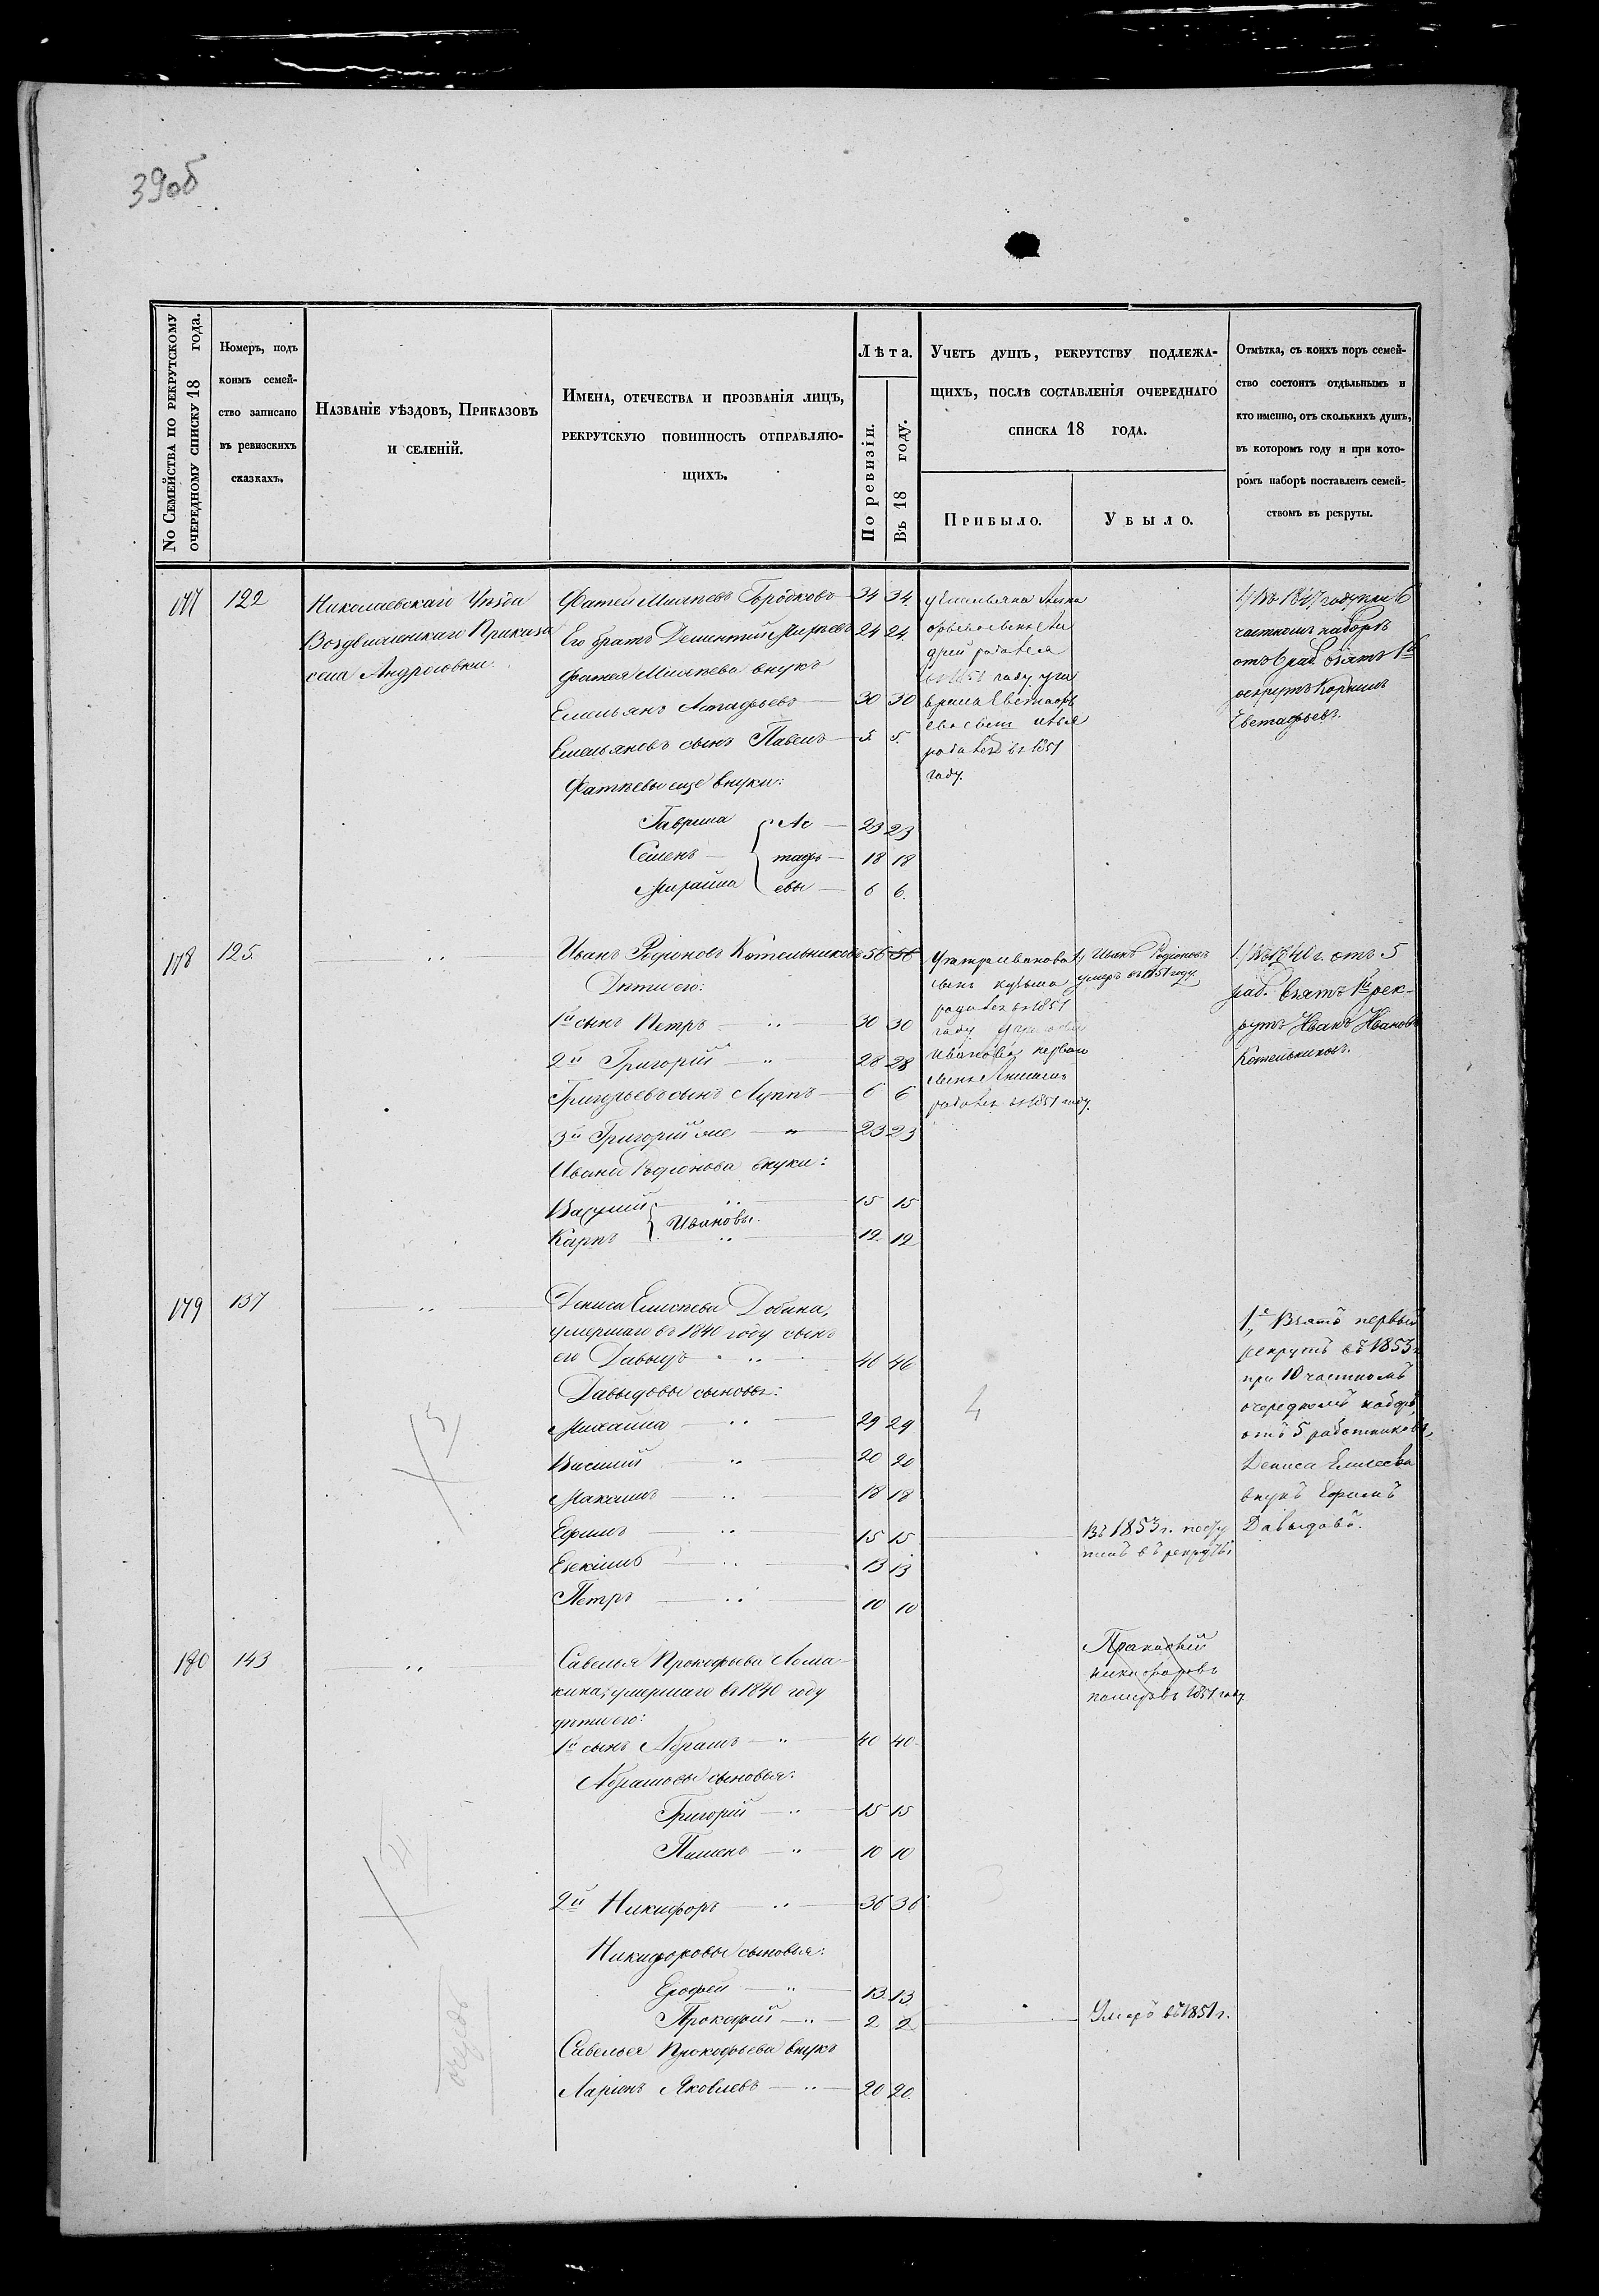 39об
No Семейства по рекрутскому
очередному списку 18 года.
Номеръ, подъ
коимъ семей-
ство записано
въ ревизскихъ
сказкахъ.
Названіе уѣздовъ, Приказовъ
и селеній.
Имена, отечества и прозванія лицъ,
рекрутскую повинность отправляю-
щихъ.
Лѣта.
По ревизіи.
Въ 18 году.
Учетъ душъ, рекрутству подлежа-
щихъ, послѣ составленія очереднаго
списка 18 года.
Прибыло.
Убыло.
Отмѣтка, съ коихъ поръ семей-
ство состоитъ отдѣльнымъ и
кто именно, отъ сколькихъ душъ,
въ которомъ году и при кото-
ромъ наборѣ поставленъ семей-
ствомъ въ рекруты.
177 122
Николаевскаго Уѣзда
Воздвиженскаго Приказа
села Андросовки
Фатей Михѣевъ 34 34
Его братъ Дементій 24 24
Фатея Михѣева внукъ
Емельянъ Астафьевъ 30 30
Емельяновъ сынъ Павелъ 5 5
Фатѣевы еще внуки:
Гаврила { Ас 23 23
Семенъ { тафь 18 18
Михайла { евы 6 6
у Емельяна
году у
родился въ 1851
году.
1/ Въ 1847 году при 6
частномъ наборѣ
отъ 6 раб. взятъ 1й
рекрутъ
Евстафьевъ.
178 125
Иванъ Родіоновъ Котельниковъ 56 56
Дѣти его:
1й сынъ Петръ 30 30
2й Григорій 28 28
Григорьевъ сынъ Луппъ 6 6
3й Григорій же 23 23
Ивана Родіонова внуки:
15 15
Карпъ { Ивановы. 12 12
у Петра Иванова
сынъ Кузьма
родился въ 1851
году у Григорья
Иванова первого
сынъ
родился въ 1851 году.
Иванъ Родіоновъ
умеръ въ 1851 году.
1/ Въ 1840 г. отъ 5
раб. взятъ 1й рек-
рутъ Иванъ Ивановъ
Котельниковъ.
179 137
Дениса Елисѣева Добина,
умершаго въ 1840 году сынъ
его Давыдъ 46 46
Давыдовы сыновья:
Михайла 29 29
Василій 20 20
Максимъ 18 18
Ефимъ 15 15
13 13
Петръ 10 10
5
4
Въ 1853 г. посту
пилъ въ рекруты
1е Взятъ первый
рекрутъ въ 1853 г
при 10 частномъ
очередномъ наборѣ,
отъ 5 работниковъ,
Дениса Елисеева
внукъ Ефимъ
Давыдовъ.
180 143
Савелья Прокофьева Лома-
кина, умершаго въ 1840 году
дѣти его:
1й сынъ Абрамъ 40 40
Абрамовы сыновья:
Григорій 15 15
Пименъ 10 10
2й Никифоръ 36 36
Никифоровы сыновья:
Ерофей 13 13
Прокофій 2 2
Савелья Прокофьева внукъ
Ларіонъ Яковлевъ 20 20
Пракофій
Никифоровъ
1851 году
Умеръ въ 1851 г.